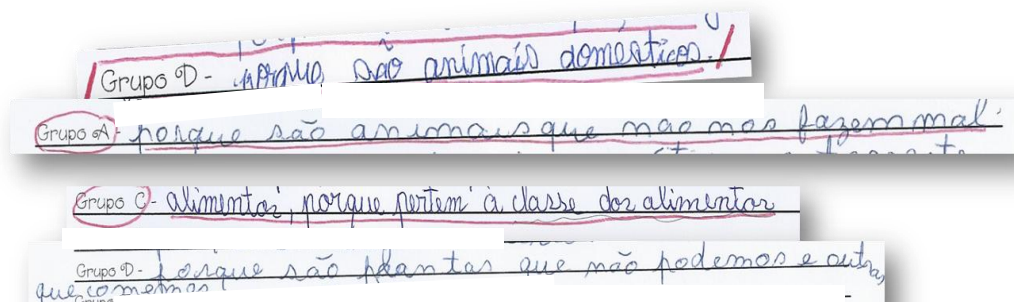 Grupo D - porque são animais domésticos.
Grupo A - porque são animais que nao nos fazem mal.
Grupo C - alimentos, porque pertem à classe dos alimentos
Grupo D - porque são plantas que não podemos e outras
que comemos